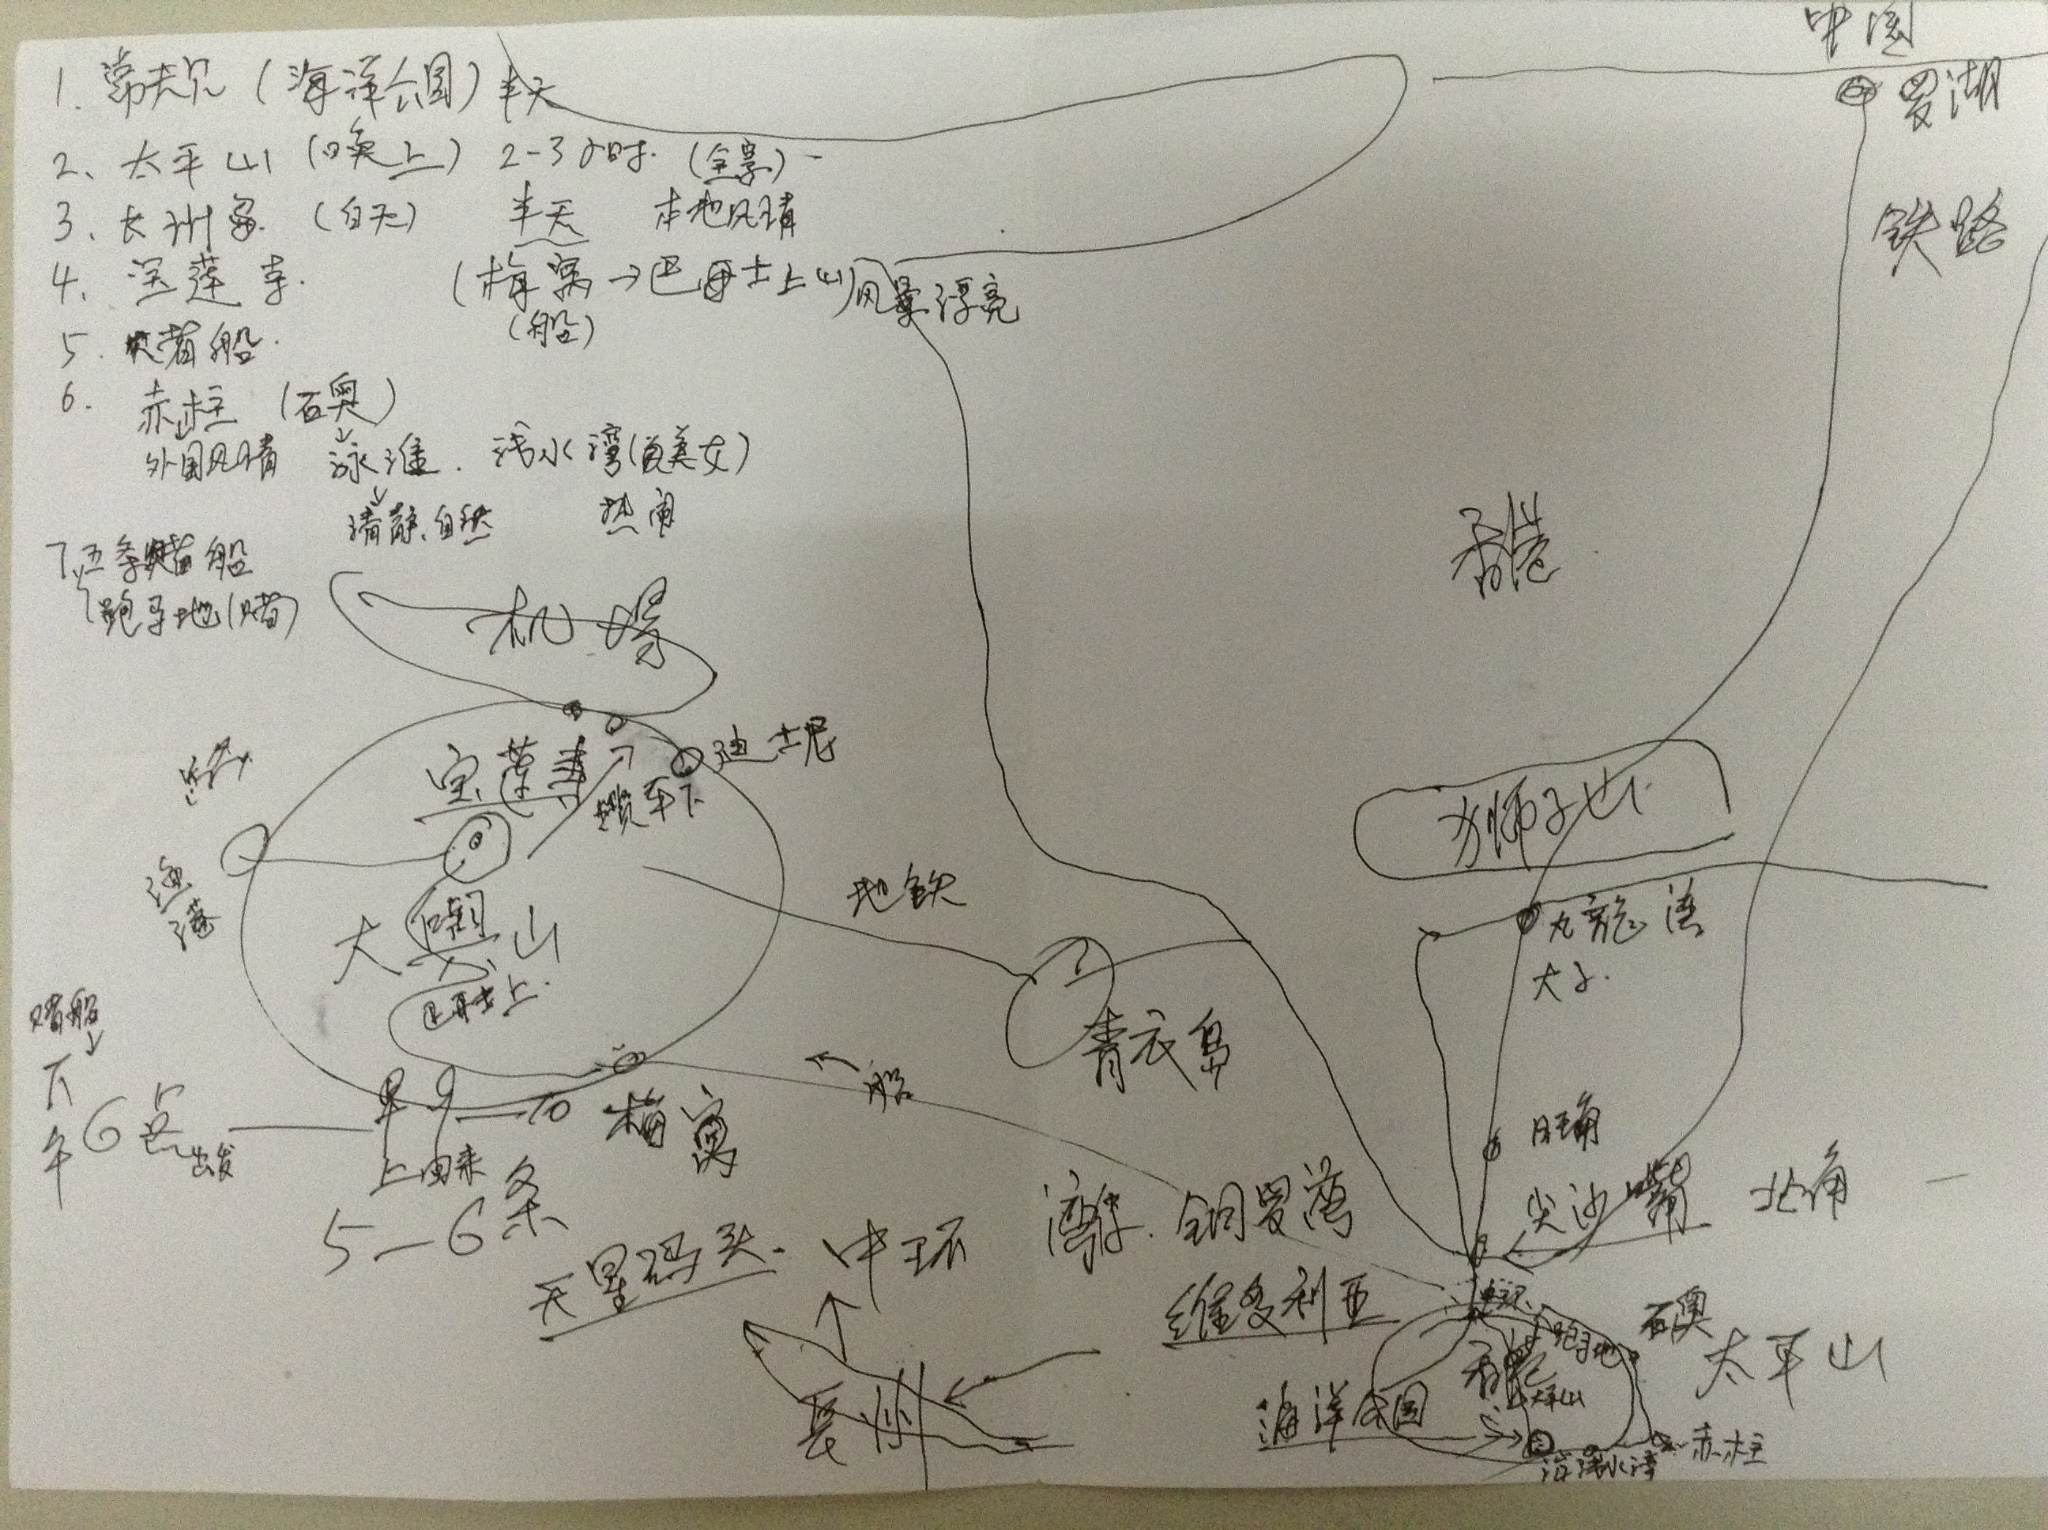 1. (海洋公园) 半天
2、太平山 (晚上) 2-3小时. (全景)
3、长洲岛. (白天) 半天 本地风情
4、宝莲寺. (梅窝→巴士上山) 风景漂亮
(船)
5. 赌船.
6. 赤柱 (石奥)
外国风情 泳滩. 浅水湾(美女)
清静、自然 热闹
7、五条赌船
跑马地(赌)
中国
罗湖
铁路
香港
机场
宝莲寺
缆车下
迪士尼
渔港
大屿山
巴士上.
地铁
青衣岛
狮子山
九龙湾
太子.
赌船
下午6点出发
上田来
5-6条
梅窝
船
旺角
尖沙嘴
北角
天星码头. 中环
湾仔. 铜罗湾
维多利亚
长州
海洋公园
中环
香港
跑马地
太平山
石奥
太平山
浅水湾
赤柱